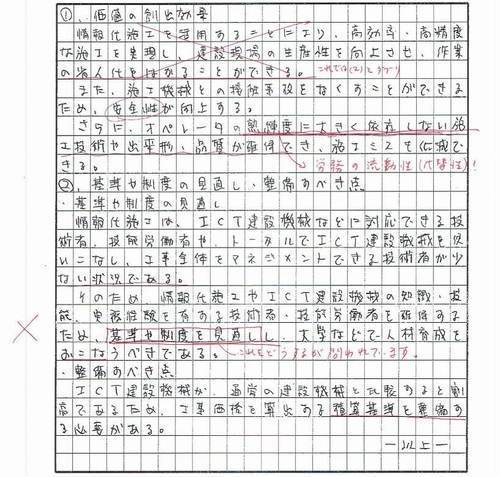 ①、価値の創出効果
情報化施工を活用することにより、高効率・高精度
な施工を実現し、建設現場の生産性を向上させ、作業
の省人化をはかることができる。これでは(2)とダブり
また、施工機械との接触事故をなくすことができる
ため、安全性が向上する。
さらに、オペレータの熟練度に大きく依存しない施
工技術や出来形、品質が確保でき、施工ミスを低減で
きる。
労務の流動性(代替性)!
②、基準や制度の見直し、整備すべき点
・基準や制度の見直し
情報化施工は、ICT建設機械などに対応できる技
術者、技能労働者や、トータルでICT建設機械を使
いこなし、工事全体をマネジメントできる技術者が少
ない状況である。
そのため、情報化施工やICT建設機械の知識・技
能、実務経験を有する技術者・技能労働者を確保する
ため、基準や制度を見直しし、大学などで人材育成を
おこなうべきである。これをどうするかが問われています。
・整備すべき点
ICT建設機械が、通常の建設機械と比較すると割
高であるため、工事価格を算出する積算基準を整備す
る必要がある。
―以上―